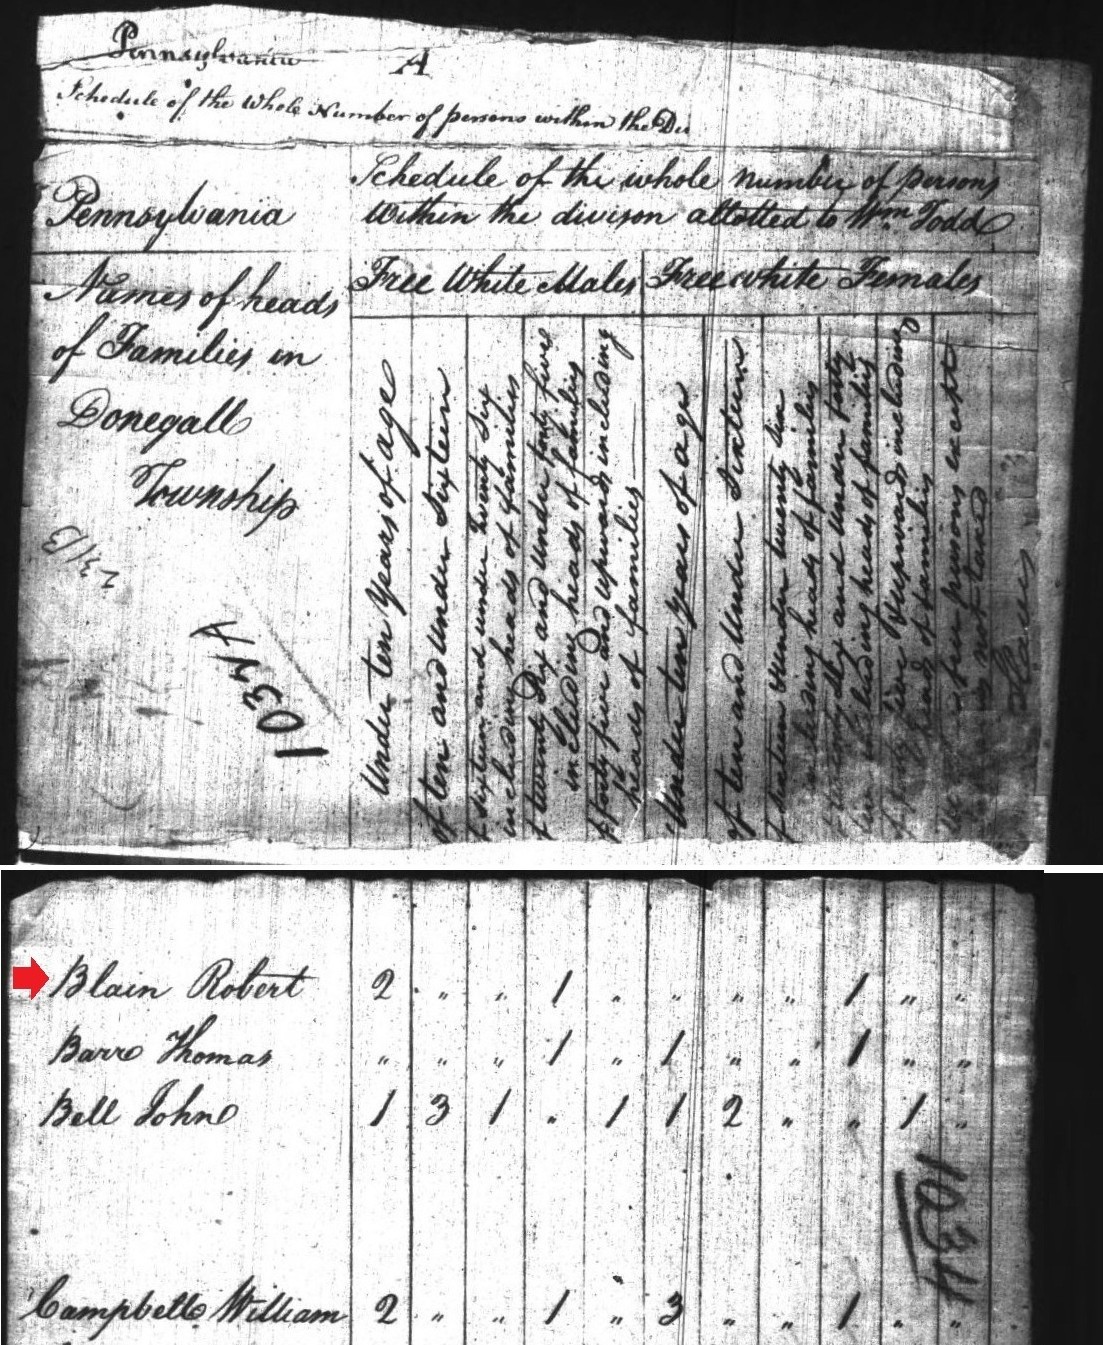 Pennsylvania
A
Schedule of the whole Number of persons within the Di
Pennsylvania
Schedule of the whole number of persons
within the divison allotted to Wm. Todd
Names of heads
of Families in
Donegall
Township
1034 A
Free White Males
Free white Females
Under ten Years of age
Of ten and Under Sixteen
f sixteen and under Twenty Six
including heads of families
f twenty Six and under forty five
including heads of families
f forty five and upwards including
heads of families
Under ten years of age
Of ten and Under Sixteen
f sixteen & under twenty Six
including heads of families
twenty Six and under forty
including heads of families
five & upwards including
head of families
free persons except
not taxed
Slaves
Blain Robert 2 " " 1 " " " " 1 " "
Barr Thomas " " " 1 " 1 " " 1 " "
Bell John 1 3 1 " 1 1 2 " " 1 "
1034
Campbell William 2 " " 1 " 3 " " 1 " "